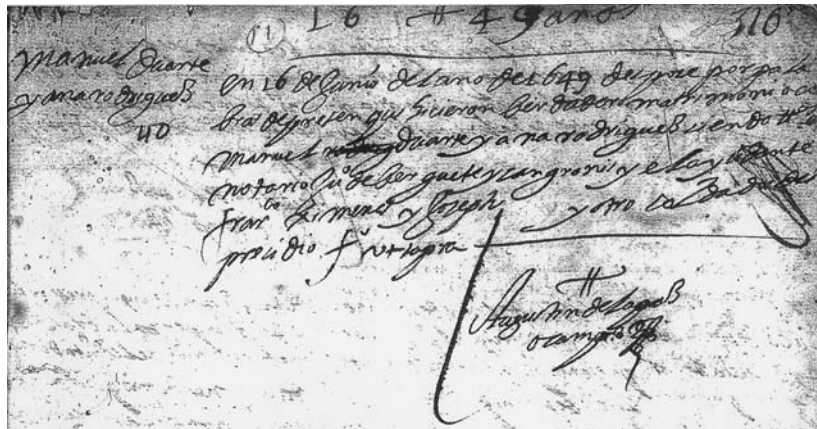 16 # 49 años 316
11
Manuel Duarte
y ana rodrigues
40
en 16 de Junio del año de 1649 despose por pala
bras de presen que hicieron berdadero matrimonio a
Manuel Duarte y ana rodrigues siendo
notario Juº de berguete y el ayudante
franco Ximenes y Joseph y otro soldado deste
presidio fº ut supra
Augustin de
ocampo